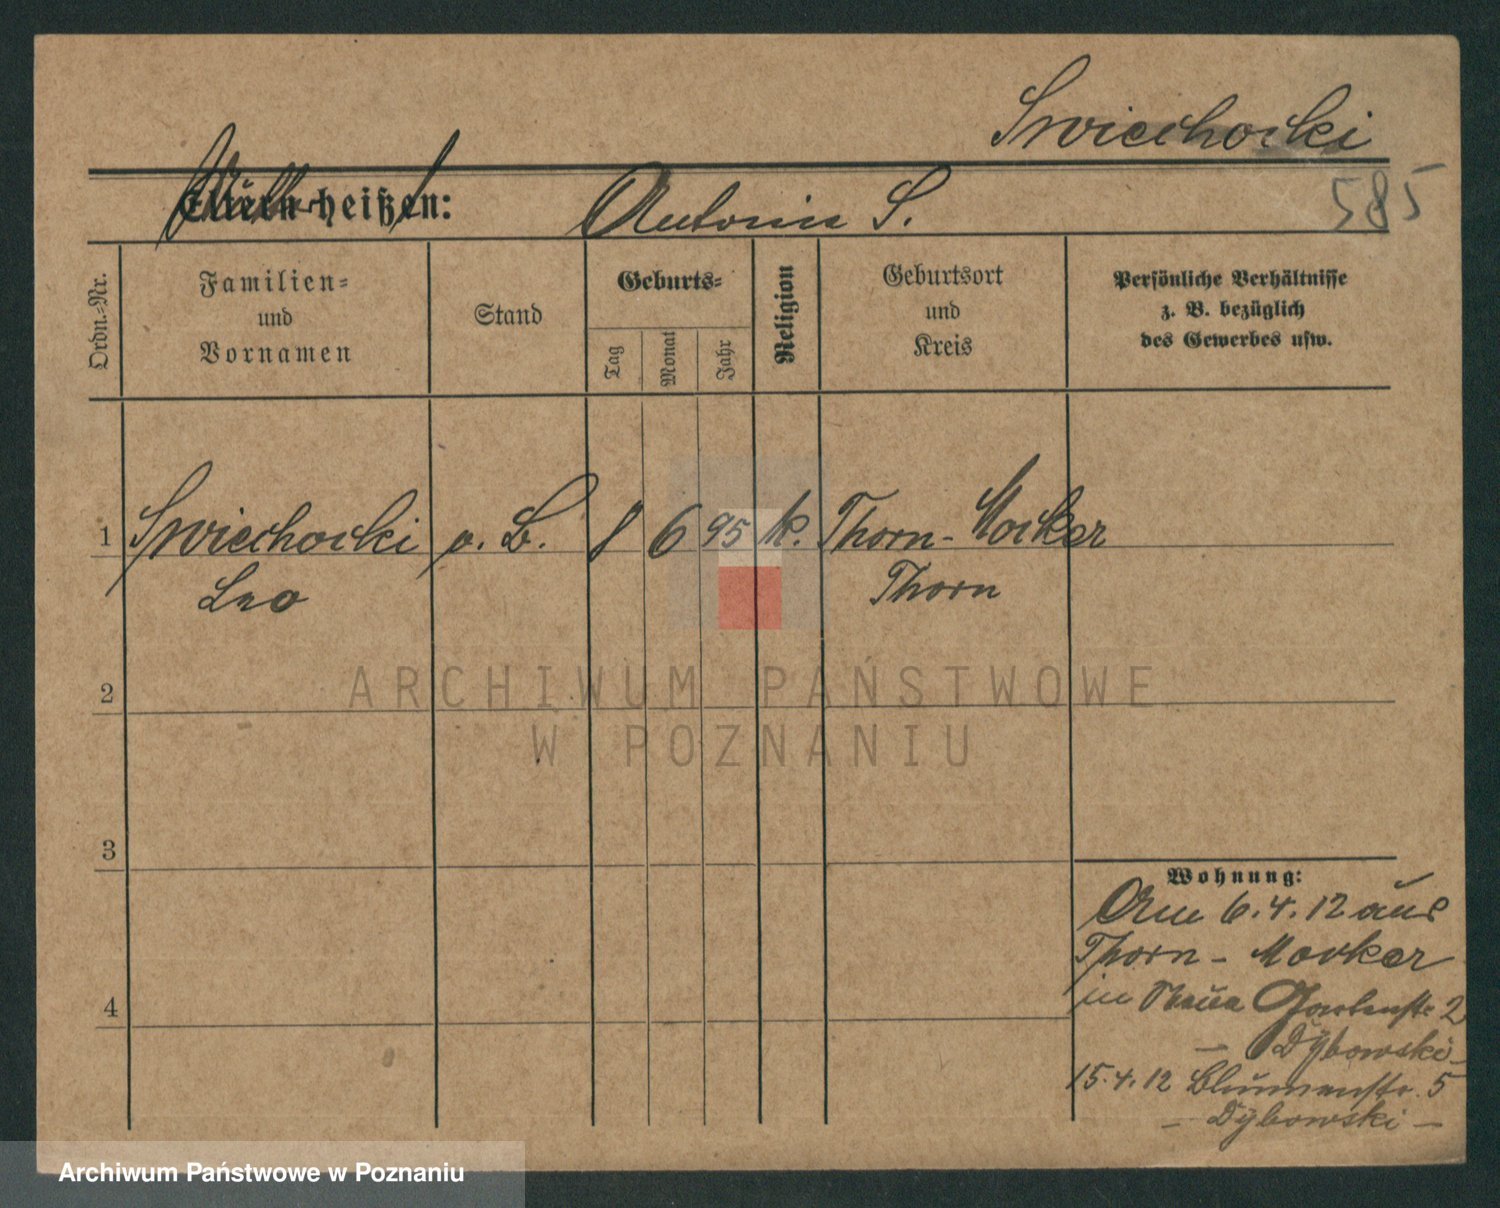 Swiechocki
Eltern heißen: Antonie S.
585
Ordn.-Nr.
Familien-
und
Vornamen
Stand
Geburts-
Tag
Monat
Jahr
Religion
Geburtsort
und
Kreis
Persönliche Verhältnisse
z. B. bezüglich
des Gewerbes usw.
1 Swiechocki o. B. 8 6 95 k. Thorn-Mocker
Leo Thorn
2
3
4
Wohnung:
Am 6.4.12 aus
Thorn - Mocker
in Neue Gartenstr 2
- Dÿbowski -
15.4.12 Blumenstr. 5
- Dÿbowski -
ARCHIWUM PAŃSTWOWE
W POZNANIU
Archiwum Państwowe w Poznaniu